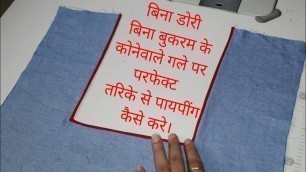 बिना डोरी
बिना बुकरम के
कोनेवाले गले पर
परफेक्ट
तरिके से पायपींग
कैसे करे।